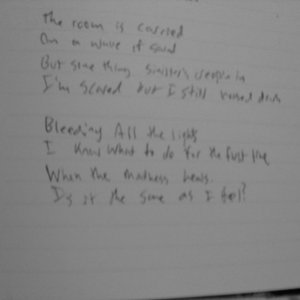 The room is carried
On a wave of sound
But some thing sinister's creeping in
I'm scared but I still drink

Bleeding All the lights
I know what to do for the first time
When the madness heals
Is it the same as I feel?